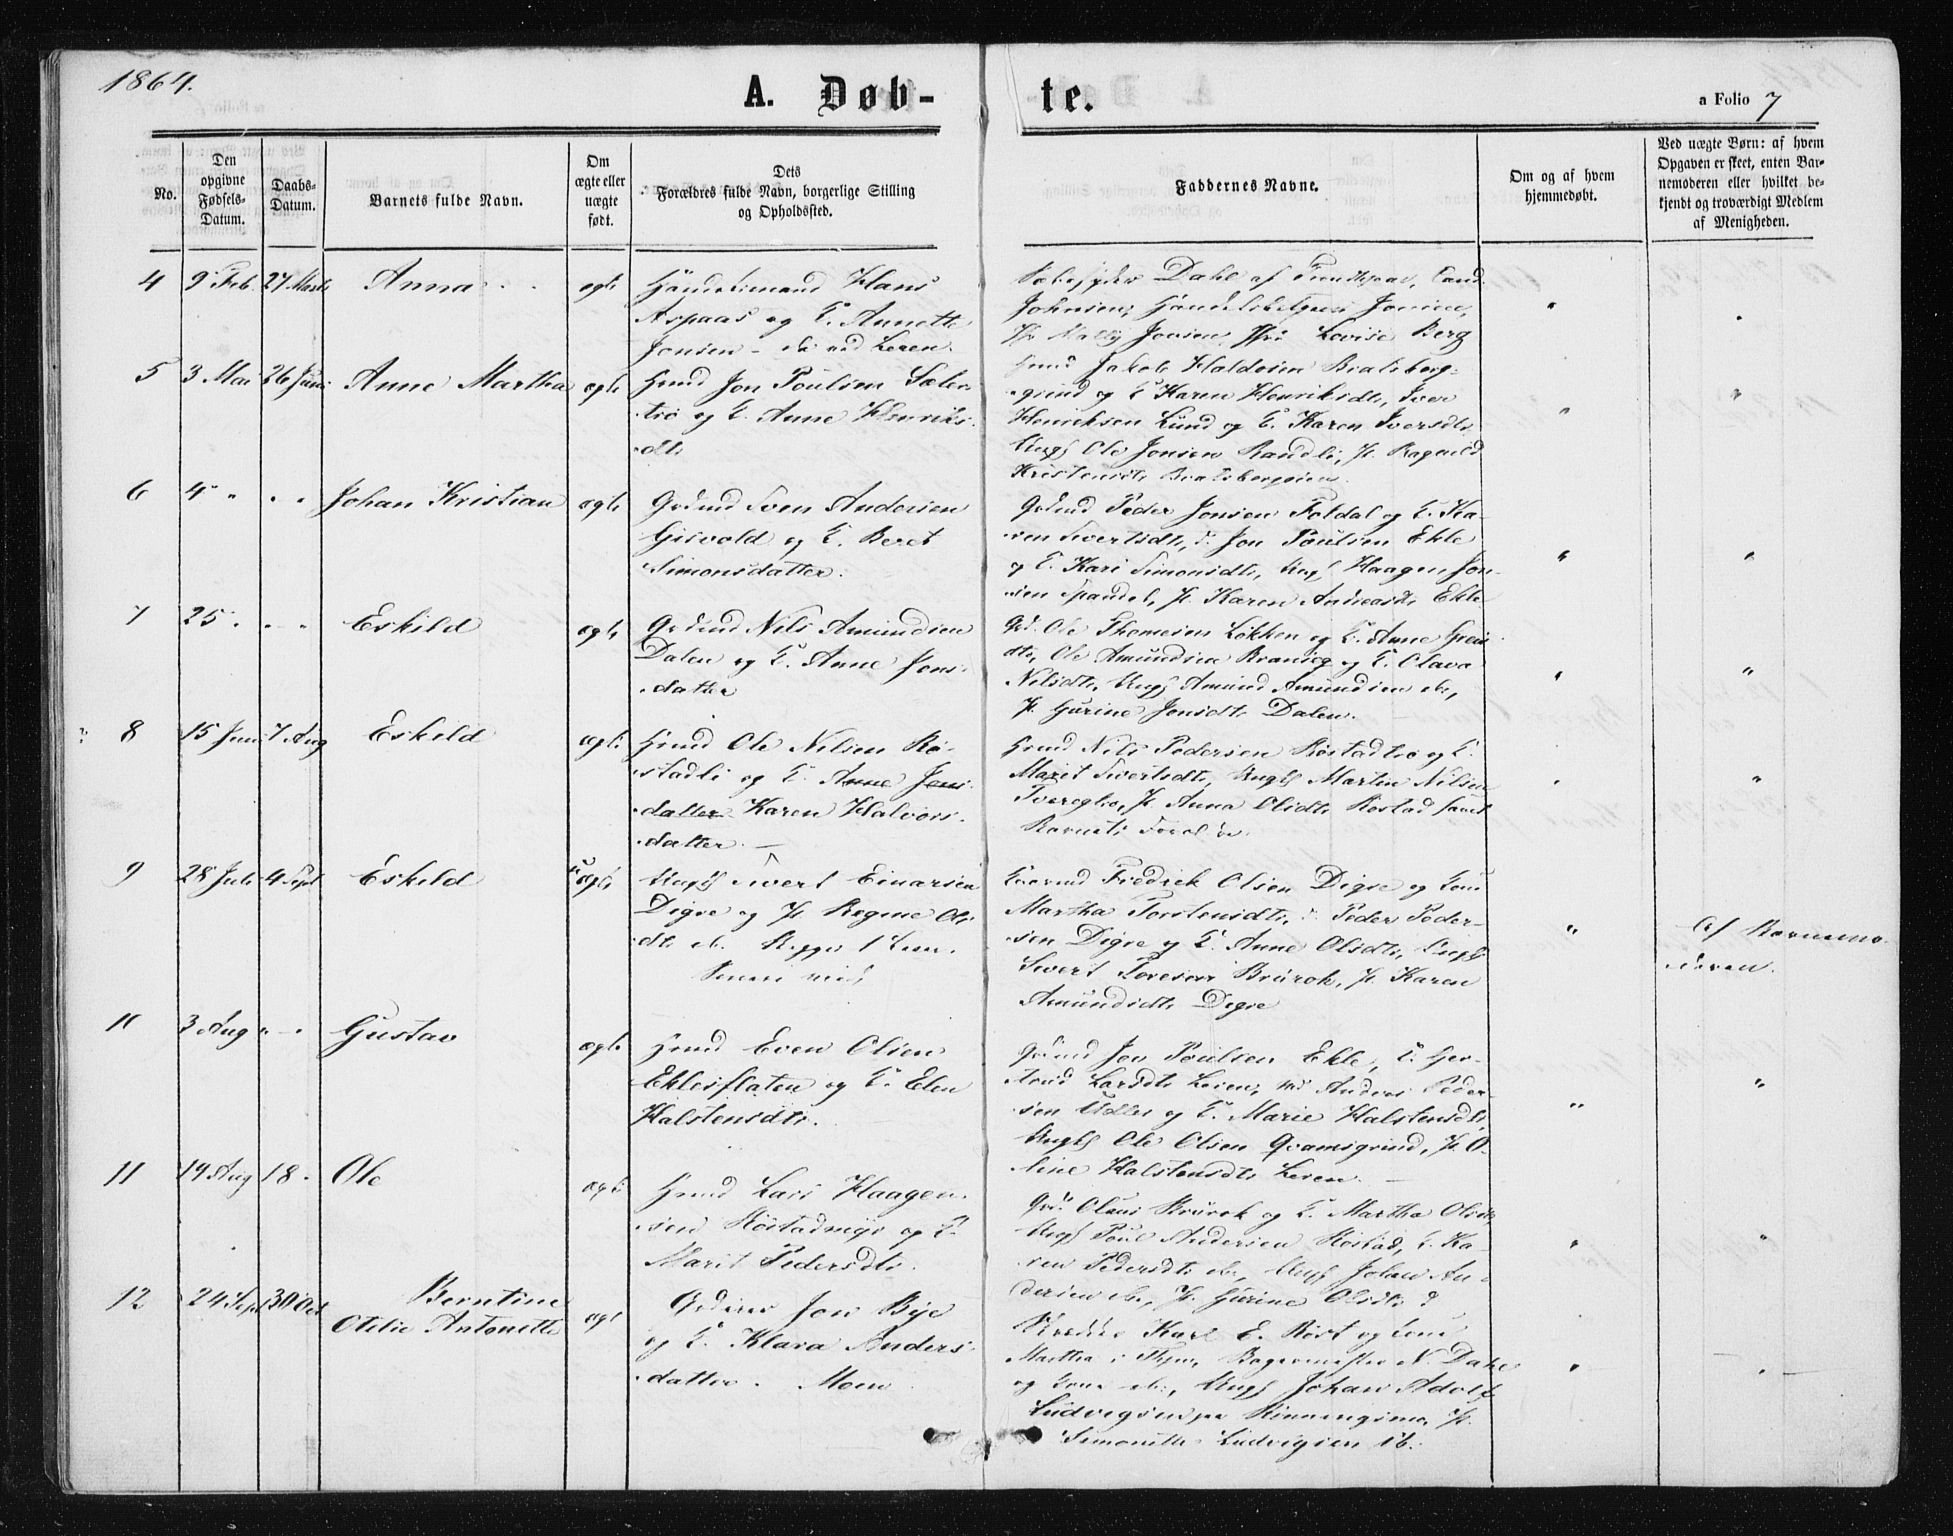 1864.
A. Døb-
te.
a Folio 7
No.
Den opgivne Fødsels-Datum.
Daabs-Datum.
Barnets fulde Navn.
Om ægte eller uægte født.
Dets Forældres fulde Navn, borgerlige Stilling og Opholdssted.
Faddernes Navne.
Om og af hvem hjemmedøbt.
Ved uægte Børn: af hvem Opgaven er skeet, enten Barnemoderen eller hvilket bekjendt og troværdigt Medlem af Menigheden.
4 9 Feb. 27 Marts Anna ægte
Handelsmand Hans
Aspaas og K. Annette
Jonsen - ved Leren.
Dahl af Cand.
Johnsen, Jonsen,
P. Jonsen, Lovise Berg
5 3 Mai 26 Juni Anne Martha ægte
Husmd Jon Poulsen Sæter-
trø og K. Anne Henriks-
dt.
Husmd Jakob Haldosen Bratsberg-
grind og K. Karen Henriksdt., Iver
Henriksen Lund og K. Karen Iversdt.
Ungk. Ole Jonsen Randli, P. Ragnild
Kristensdt.
6 4 " " " Johan Kristian ægte
Grdmd Sven Andersen
Gisvold og K. Beret
Simonsdatter.
Grdmd Peder Jonsen Foldal og K. Ka-
ren Sivertsdt., Jon Poulsen Ekle
og K. Kari Simonsdt., Ungk. Haagen Jon-
sen Spandet, P. Karen Andreasdt. Ekle
7 25 " " " Eskild ægte
Grdmd Nils Amundsen
Dalen og K. Anne Jons-
datter
Grd. Ole Thomesen Løkken og K. Anne
dt., Ole Amundsen og K. Olava
Nilsdt., Ungk. Amund Amundsen
P. Gurine Jonsdt. Dalen.
8 15 Juni 7 Aug Eskild ægte
Husmd Ole Nilsen Rø-
stadli og K. Anne Jons-
datter Karen Halvors-
datter. —
Husmd Nils Pedersen Røstadtrø og K.
Marit Sivertsdt., Ungk. Martin Nilsen
P. Anna Olsdt. Røstad samt
Barnets
9 28 Juli 4 Sept Eskild uægte
Ungk. Sivert Einarsen
Digre og P. Regine Ols-
dt.
Fredrik Olsen Digre og Kone
Martha Torstensdt., Peder Peder-
sen Digre og K. Anne Olsdt., Ungk.
Sivert Toresen Brurok, P. Karen
Amundsdt. Digre
" Af Barnemo-
deren.
10 3 Aug " " Gustav ægte
Husmd Even Olsen
Eklesflaten og K. Elen
Halstensdt.
Grdmd Jon Poulsen Ekle, K.
Larsdt. Leren, Anders Peder-
sen og K. Marie Halstensdt.,
Ungk. Ole Olsen Qvamsgrind, P. O-
line Halstensdt. Leren. —
11 14 Aug 18 " Ole ægte
Husmd Lars Haagen-
sen Røstadmyr og K.
Marit Pedersdt.
Grd. Olaus Brurok og K. Martha Olsdt.
Ungk. Poul Andersen Røstad, K. Ka-
ren Pedersdt. Ungk. Johan An-
dersen P. Gurine Olsdt.
12 24 Sept 30 Oct Berntine
Otelie Antonette ægte
Jon Bye
og K. Klara Anders-
datter. Moen
Karl E. Røst og Kone
Martha i Thjem, Bagermester N. Dahl
og Kone Ungk. Johan Adolf
Ludvigsen P.
Ludvigsen ib.